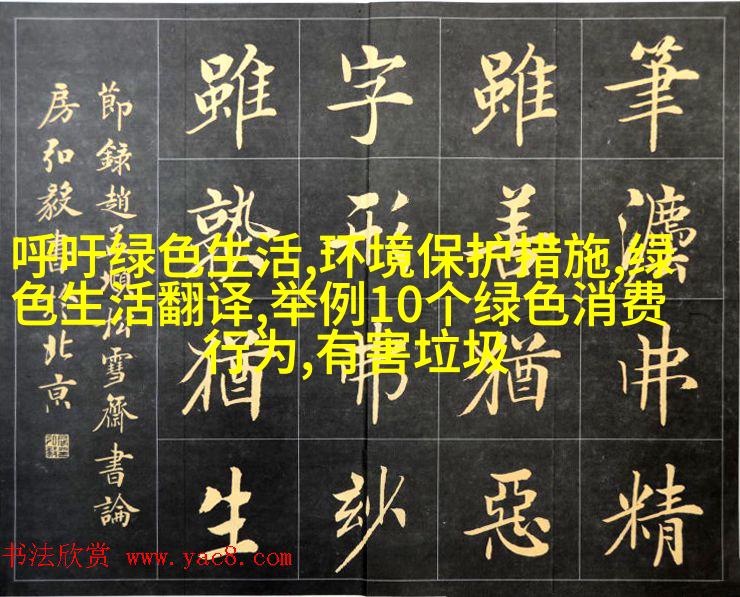 呼吁绿色生活,环境保护措施,绿
色生活翻译,举例10个绿色消费
行为,有害垃圾
筆灋弗精
雖善猶惡
字形弗妙
雖熟猶生
節錄趙孟頫松雪齋書論
房弘毅書於北京
书法欣赏 www.yac8.com